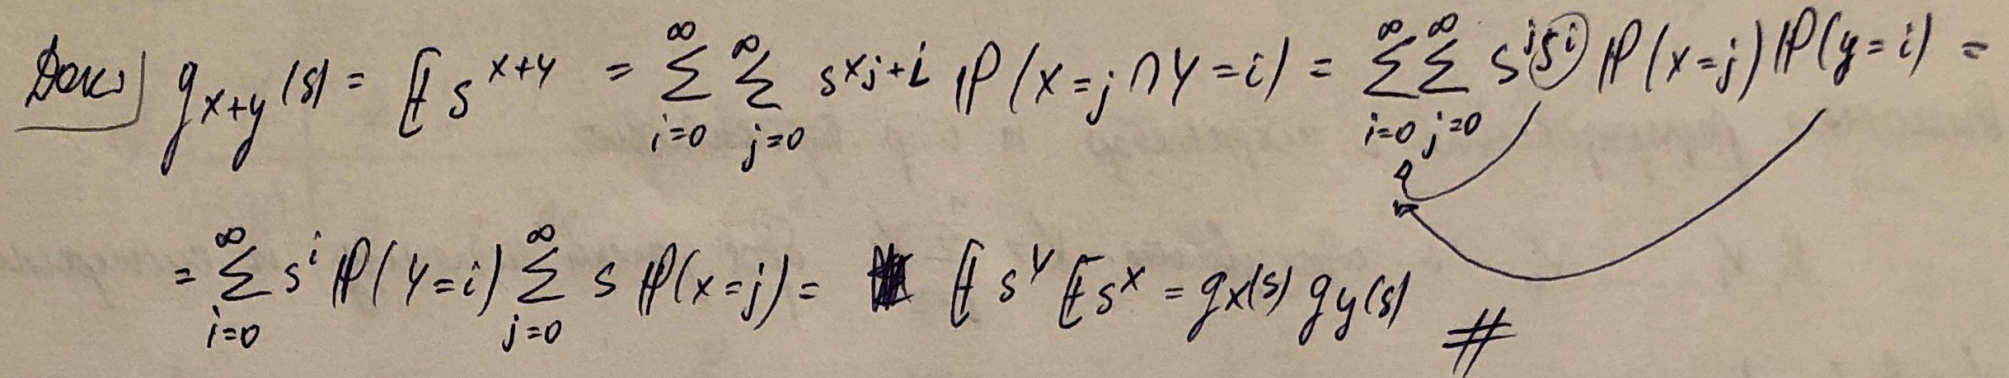 Док) g_{x+y}(s) = E s^{x+y} = ∑_{i=0}^{∞} ∑_{j=0}^{∞} s^{xj+i} ℙ(X=j ∩ Y=i) = ∑_{i=0}^{∞} ∑_{j=0}^{∞} s^j s^i ℙ(X=j) ℙ(Y=i) =
= ∑_{i=0}^{∞} s^i ℙ(Y=i) ∑_{j=0}^{∞} s ℙ(X=j) = E s^Y E s^X = g_x(s) g_y(s) #